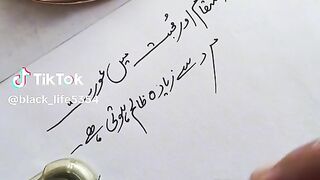 انتقام اور محبت میں عورت
مرد سے زیادہ ظالم ہوتی ہے۔
TikTok
@black_life5354